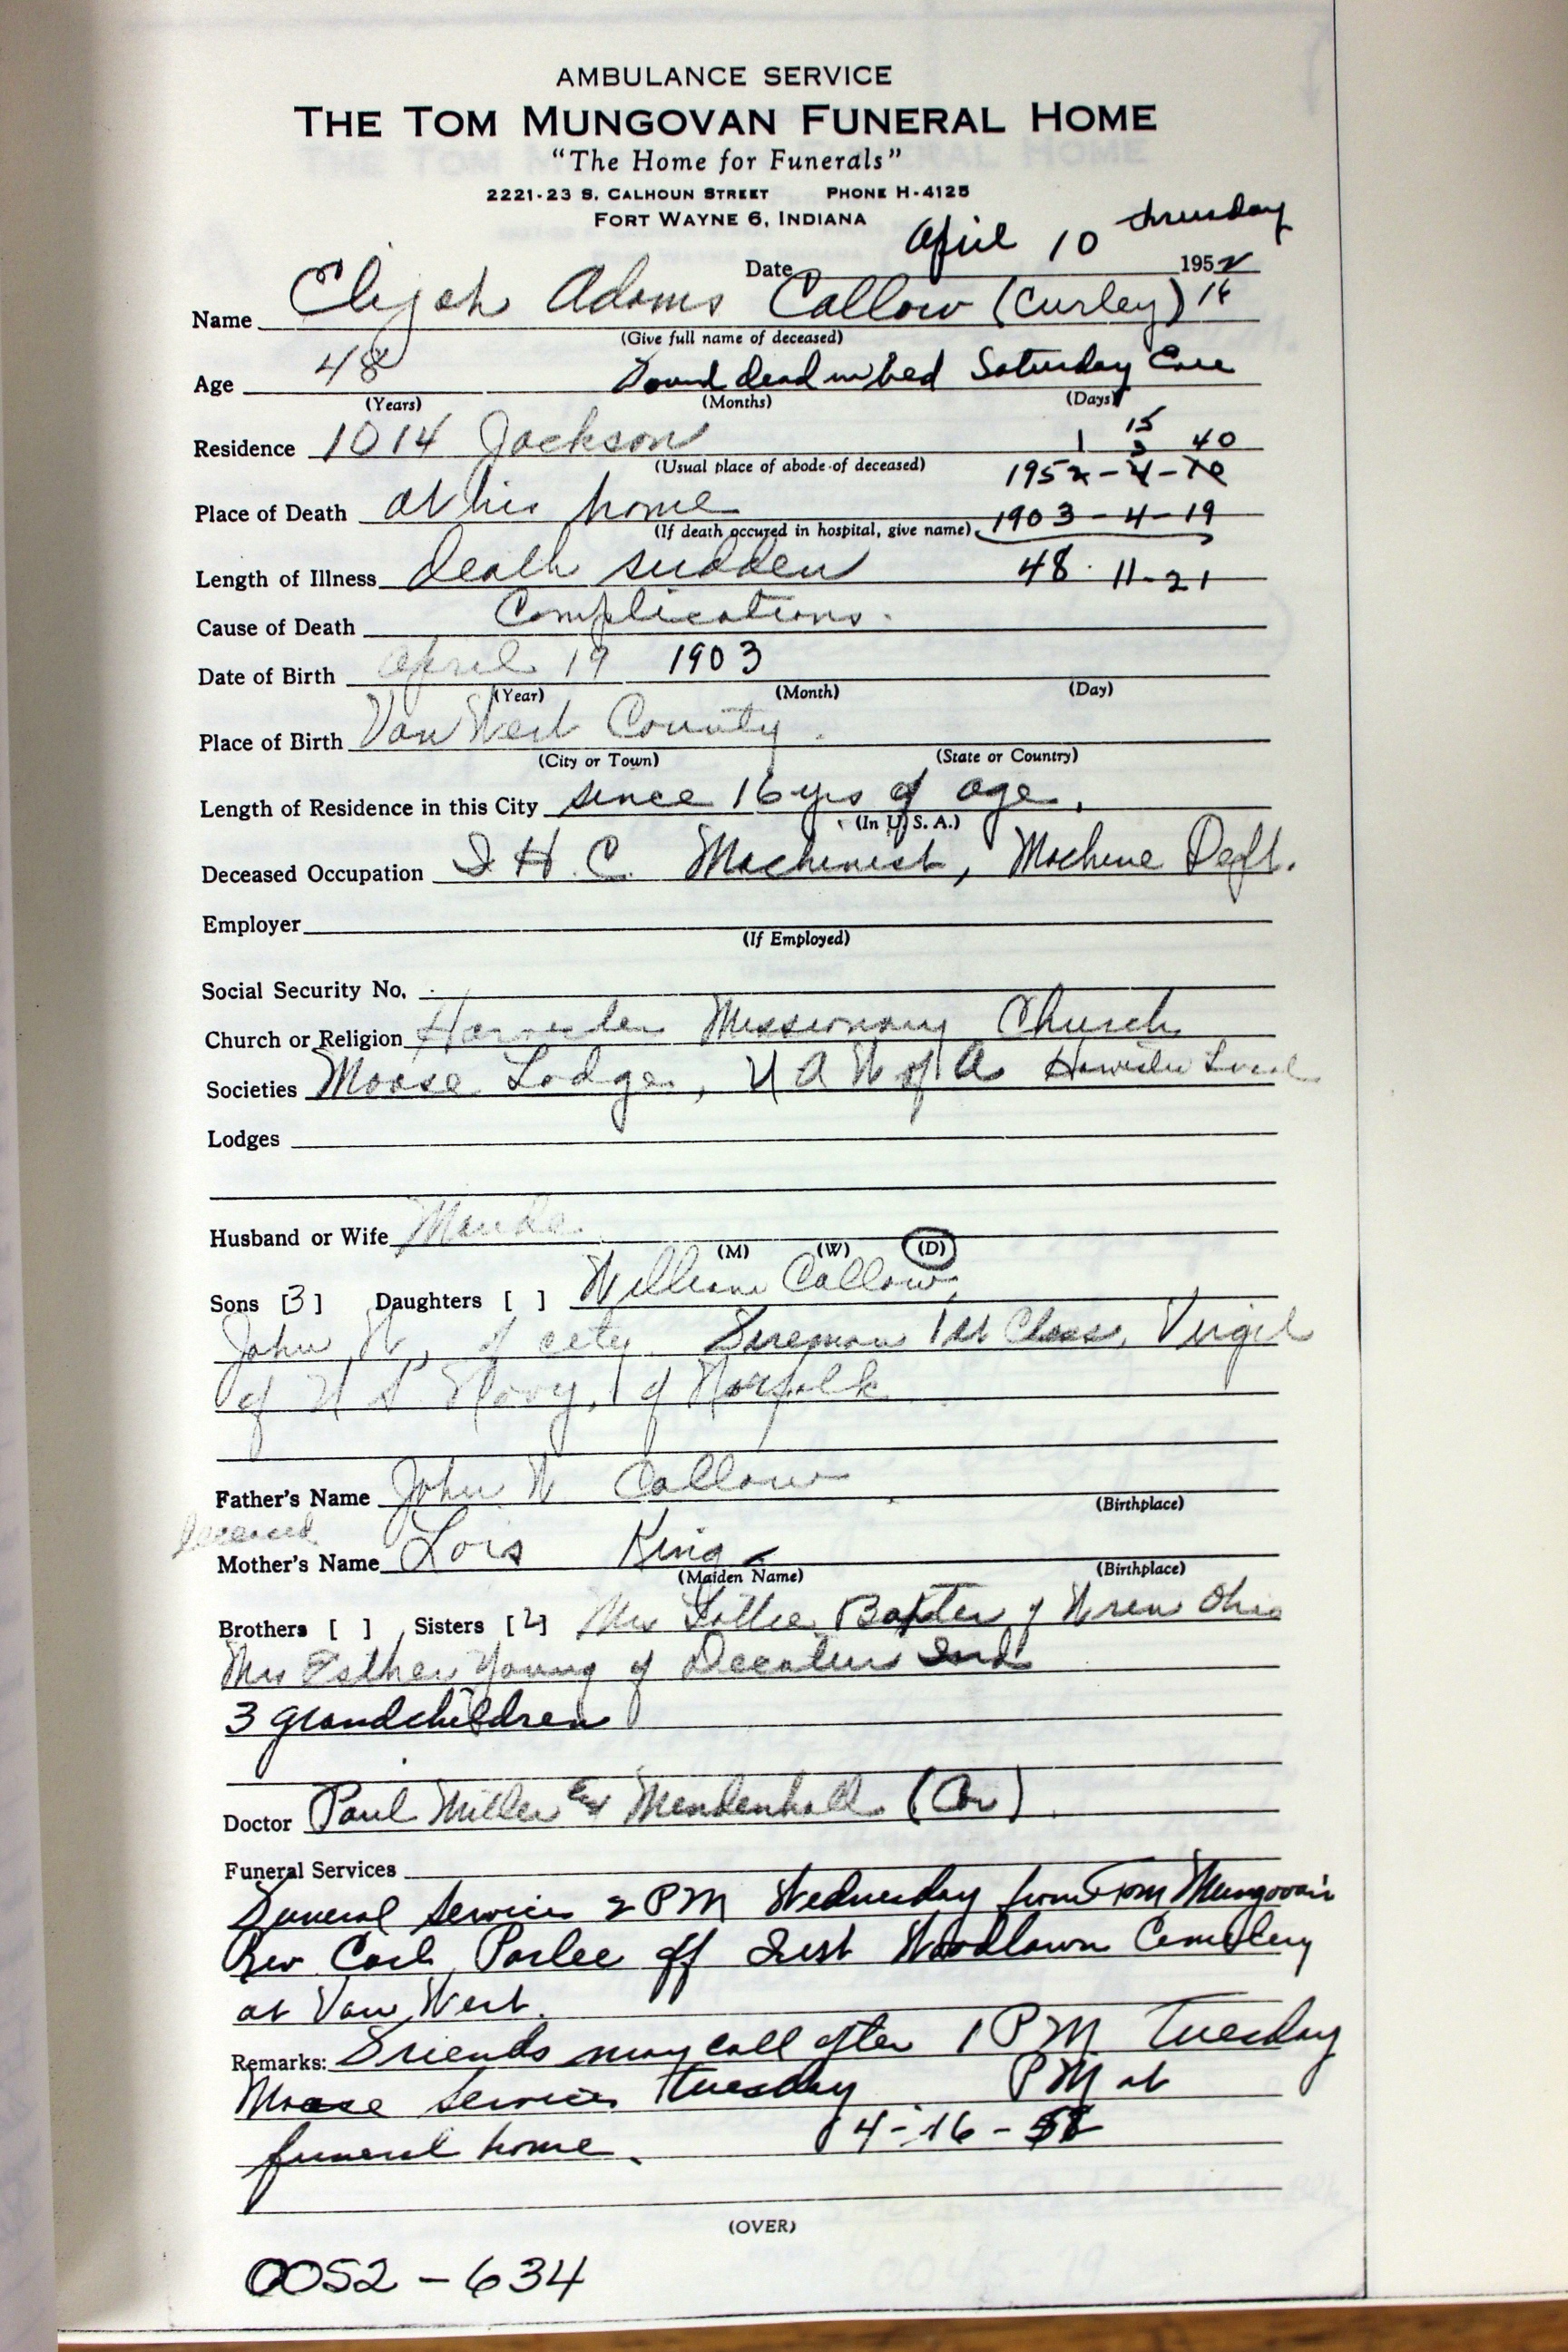 AMBULANCE SERVICE
THE TOM MUNGOVAN FUNERAL HOME
"The Home for Funerals"
2221-23 S. CALHOUN STREET PHONE H-4125
FORT WAYNE 6, INDIANA
Date April 10 thrusday 1952
Name Elijah Adams Callow (Curley)
(Give full name of deceased)
Age 48 Found dead in bed Saturday Eve
(Years) (Months) (Days)
Residence 1014 Jackson 1 15 3 40
(Usual place of abode of deceased) 1952-4-10
Place of Death at his home 1903-4-19
(If death occured in hospital, give name)
Length of Illness death sudden 48-11-21
Cause of Death Complications.
Date of Birth April 19 1903
(Year) (Month) (Day)
Place of Birth Van Wert County.
(City or Town) (State or Country)
Length of Residence in this City since 16 yrs of age.
(In U. S. A.)
Deceased Occupation I H. C. Machinest, Machine Dept.
Employer
(If Employed)
Social Security No.
Church or Religion Harvester Missionary Church
Societies Moose Lodge, U A W of A Harvester Local
Lodges
Husband or Wife Maude
(M) (W) (D)
Sons [3] Daughters [ ] William Callow,
John W., of city. Fireman 1st Class, Virgil
of U S Navy, of Norfolk
Father's Name John W Callow
(Birthplace)
deceased
Mother's Name Lois King
(Maiden Name) (Birthplace)
Brothers [ ] Sisters [2] Mrs Lottie Baxter of Wren Ohio
Mrs Esther Young of Decatur Ind
3 grandchildren
Doctor Paul Miller & Mendenhall (Cor)
Funeral Services
Funeral Services 2 PM Wednesday from Tom Mungovan
Rev Carl Parlee off Inst Woodlawn Cemetery
at Van Wert.
Remarks: Friends may call after 1 PM Tuesday
Moose services Tuesday PM at
funeral home. 4-16-52
(OVER)
0052-634